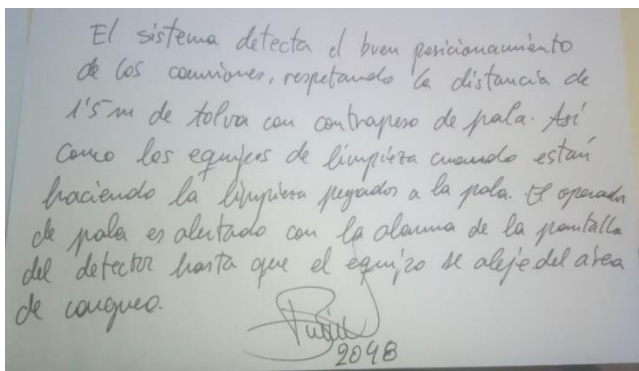 El sistema detecta el buen posicionamiento
de los camiones, respetando la distancia de
1'5 m de tolva con contrapeso de pala. Así
como los equipos de limpieza cuando están
haciendo la limpieza pegados a la pala. El operador
de pala es alertado con la alarma de la pantalla
del detector hasta que el equipo se aleje del area
de cargueo.
2048